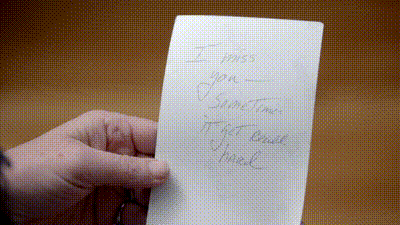 I miss
you —
Sometimes
it get really
hard